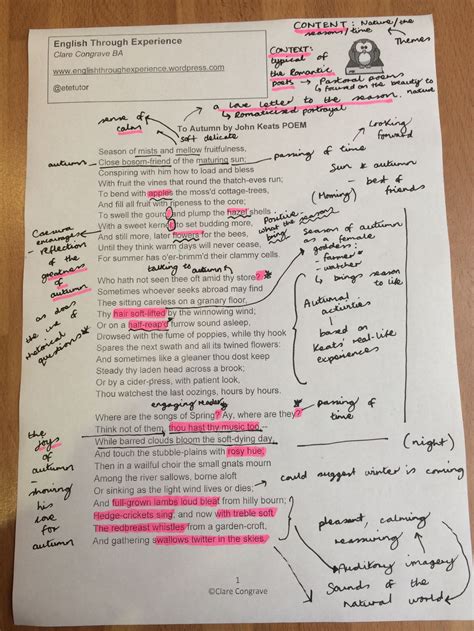 English Through Experience
Clare Congrave BA
www.englishthroughexperience.wordpress.com
@etetutor
CONTENT: Nature/the
seasons/time
Themes
CONTEXT:
typical of
the Romantic
poets → Pastoral poems
→ focused on the beauty to
nature
a love letter to the season.
↳ Romanticised portrayal
sense of
calm
soft delicate
To Autumn by John Keats POEM
Season of mists and mellow fruitfulness,
autumn
Close bosom-friend of the maturing sun;
passing of time
looking
forward
Conspiring with him how to load and bless
With fruit the vines that round the thatch-eves run;
To bend with apples the moss'd cottage-trees,
And fill all fruit with ripeness to the core;
To swell the gourd, and plump the hazel shells
With a sweet kernel; to set budding more,
And still more, later flowers for the bees,
Until they think warm days will never cease,
For summer has o'er-brimm'd their clammy cells.
Sun & autumn
- best of
friends
(Morning)
Positive
what the season
bring
Caesura
encourages
reflection
of the
greatness of
autumn
as does
the use of
rhetorical
questions
talking to autumn
Who hath not seen thee oft amid thy store?
Sometimes whoever seeks abroad may find
Thee sitting careless on a granary floor,
Thy hair soft-lifted by the winnowing wind;
Or on a half-reap'd furrow sound asleep,
Drowsed with the fume of poppies, while thy hook
Spares the next swath and all its twined flowers:
And sometimes like a gleaner thou dost keep
Steady thy laden head across a brook;
Or by a cider-press, with patient look,
Thou watchest the last oozings, hours by hours.
Season of autumn
as a female
goddess:
- farmer
- watcher
↳ brings season
to life
Autumnal
activities
based on
Keats' real-life
experiences
engaging reader
Where are the songs of Spring? Ay, where are they?
passing of
time
Think not of them, thou hast thy music too,--
While barred clouds bloom the soft-dying day,
(night)
And touch the stubble-plains with rosy hue;
Then in a wailful choir the small gnats mourn
Among the river sallows, borne aloft
Or sinking as the light wind lives or dies;
could suggest winter is coming
And full-grown lambs loud bleat from hilly bourn;
Hedge-crickets sing; and now with treble soft
The redbreast whistles from a garden-croft,
And gathering swallows twitter in the skies.
the
joys
of
autumn
-
showing
his
love
for
autumn
pleasant, calming
reassuring
Auditory imagery
Sounds of the
natural world
1
©Clare Congrave